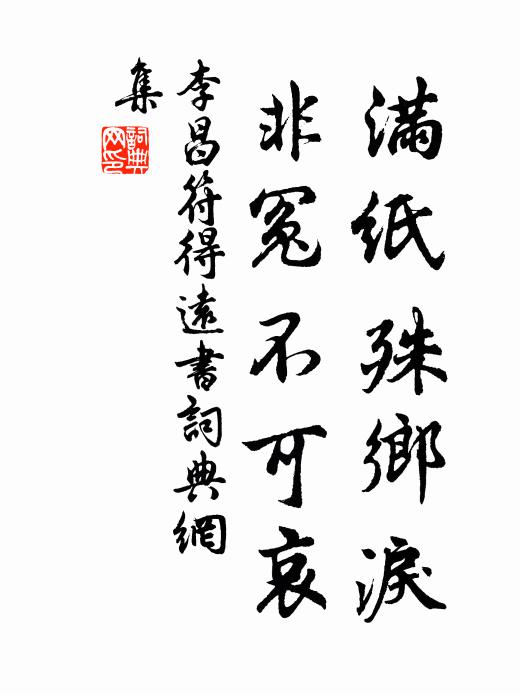 滿紙殊鄉淚
非冤不可哀
李昌符得遠書詞典網
集
詞典网印